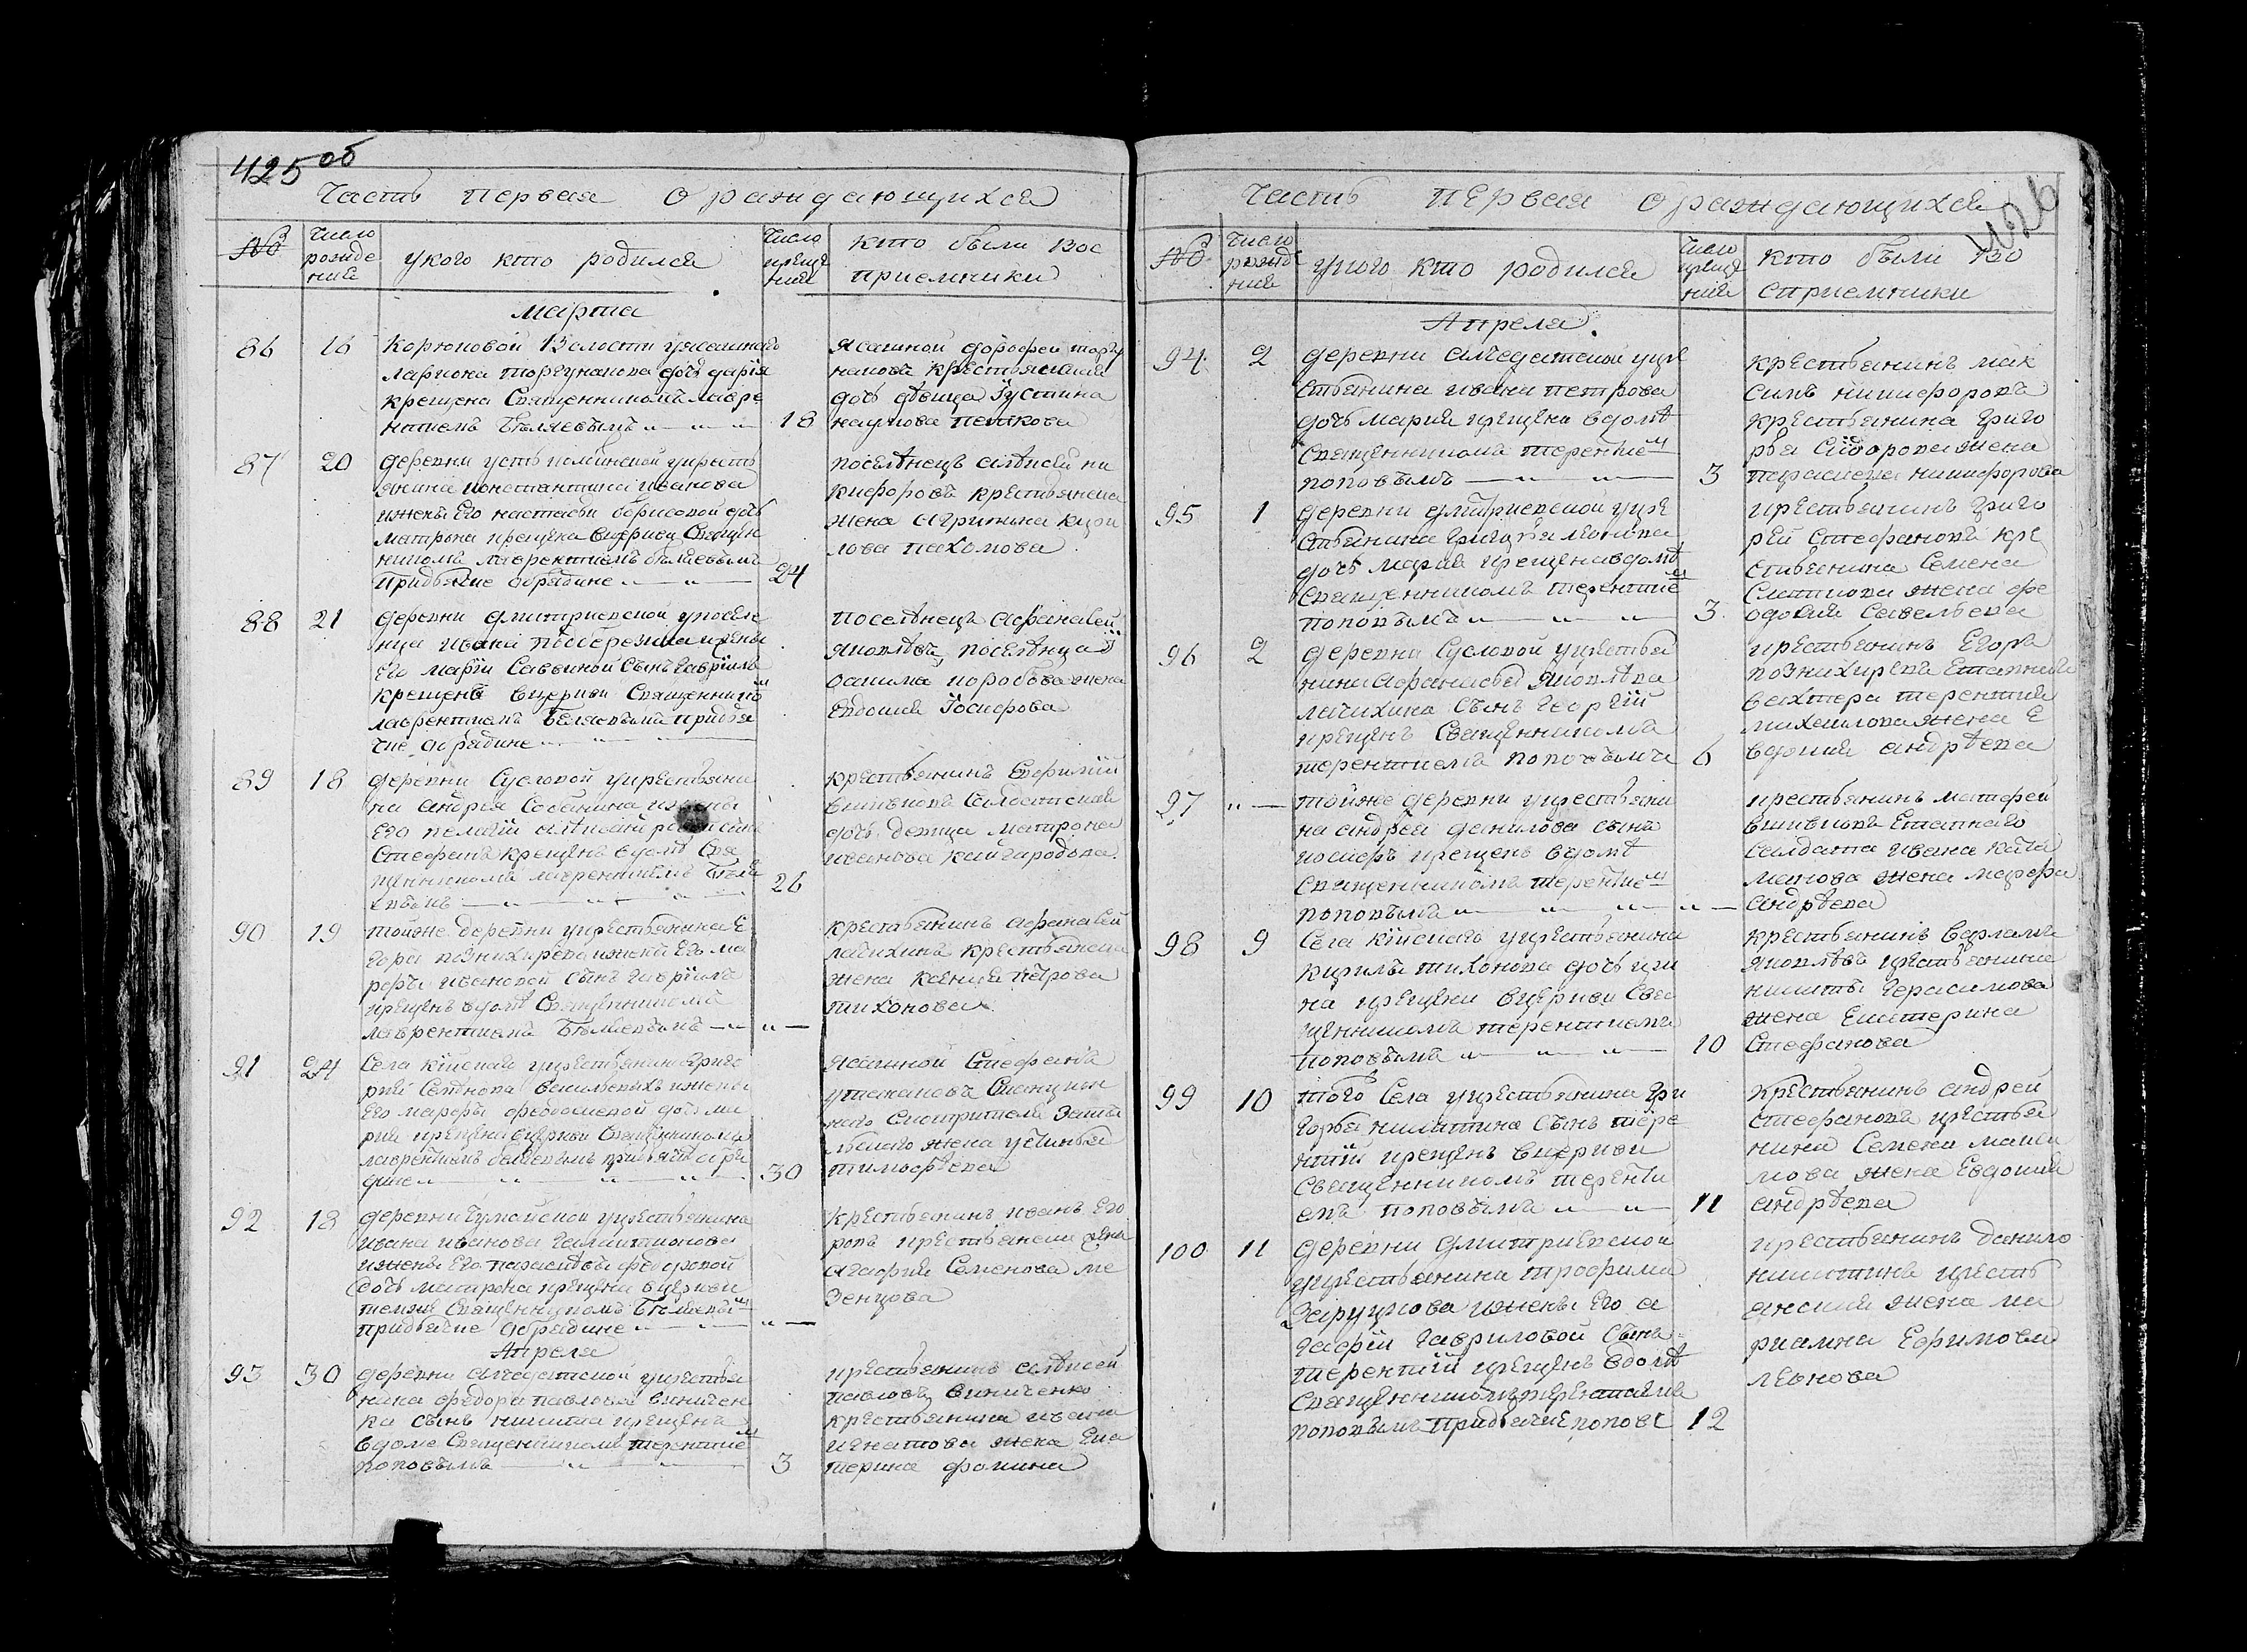 425 об
Часть первая о раждающихся
№ Число рождение у кого кто родился Число крещение кто были вос
приемники
Марта
86 16 Корюковой волости у ясашнаго
Лариона Торгунакова дочь дария
крещена Священникомъ лавре
нтиемъ Беляевымъ 18
Ясашной дорофей торгу
наковъ крестьянская
дочь девица Iустина
наумова пешкова
87 20 деревни усть колбинской у кресть
янина Константина иванова
и жены Его настасьи борисовой дочь
матрона крещена в церкви Священ
никомъ лаврентиемъ беляевымъ
при дьячке обрядине 24
поселенецъ алѣксей ни
кифоровъ крестьянска
жена Агрипина
пахомова
88 21 деревни дмитриевской у поселе
нца ивана и жены
Его марiи Савиной Сынъ гаврiилъ
крещенъ в церкви Священником
лаврентиемъ Беляевымъ при дья
чке обрядине
поселѣнецъ афанасей
яковлѣвъ, поселѣнца
осипа коробова жена
Евдокия Iосифова
89 18 деревни Сусловой у крестьяни
на Андрея Собакина и жены
Его пелагiи сынъ
Стефанъ крещенъ в домѣ Свя
щенникомъ лаврентиемъ Беля
евымъ 26
крестьянинъ Ефимiй
Салдатская
дочь девица матрона
иванова кайгародова
90 19 тойже деревни у крестьянина Е
гора познихирева и жены Его ма
рфы ивановой сынъ гаврiилъ
крещенъ в домѣ Священникомъ
лаврентиемъ Беляевымъ
крестьянинъ афанасей
лалихинъ крестьянска
жена Ксения петрова
тихонова
91 24 Села кiйскаго у крестьянина григо
рия васильевыхъ и жены
Его марфы дочь ма
рия крещена в церкви Священникомъ
лаврентиемъ беляевымъ при обря
дине 30
Ясашной Стефанъ
утекановъ Станцион
наго Смотрителя
жена устинья
тимофѣева
92 18 деревни Чумайской у крестьянина
ивана иванова
и жены Его парасковьи федоровой
дочь матрона крещена в церкви
темже Священникомъ Беляевым
при дьячке обрядине
крестьянинъ иванъ Его
ровъ крестьянска жена
агафия Семенова ме
зенцова
Апреля
93 30 деревни алчедатской у крестья
нина федора павлова виничен
ка сынъ никита крещенъ
в доме Священникомъ терентием
поповымъ 3
крестьянинъ алѣксей
павловъ виниченко
крестьянина ивана
игнатова жена Ека
терина фомина
426
Часть первая о раждающихся
№ Число рождение у кого кто родился Число крещение кто были во
сприемники
Апреля
94 2 деревни алчедатской у кре
стьянина ивана петрова
дочь мария крещена в домѣ
Священникомъ терентием
поповымъ 3
крестьянинъ мак
симъ никифоровъ
крестьянина григо
рья Сидорова жена
параскева никифорова
95 1 деревни дмитриевской у кре
стьянина григорья леонова
дочь мария крещена в домѣ
Священникомъ терентие
поповымъ 3
крестьянинъ григо
рей Стефановъ кре
стьянина Семена
жена фе
одосия Савельева
96 2 деревни Сусловой у крестья
нина афанасья яковлѣва
лалихина Сынъ георгiй
крещенъ Священникомъ
терентиемъ поповымъ 6
крестьянинъ Егоръ
познихиревъ Етапнаго
вахтера терентия
михаилова жена Е
вдокия андрѣева
97 тойже деревни у крестьяни
на андрея данилова сынъ
иосифъ крещенъ в домѣ
Священникомъ терентием
поповымъ
крестьянинъ матфей
Етапнаго
Салдата ивана кала
жена марфа
андрѣева
98 9 Села Кiйскаго у крестьянина
кирила тихонова дочь ири
на крещена в церкви Свя
щенникомъ терентиемъ
поповымъ 10
крестьянинъ варламъ
яковлѣвъ крестьянина
никиты герасимова
жена Екатерина
Стефанова
99 10 того Села у крестьянина гри
горья никитина Сынъ тере
нтiй крещенъ в церкви
Священникомъ теренти
емъ поповымъ 11
крестьянинъ андрей
стефановъ крестья
нина Семена макси
мова жена Евдокия
андрѣева
100 11 деревни дмитриевской
у крестьянина трофима
Заруцкова и жены Его а
гафiи гавриловой Сынъ
терентiй крещенъ в домѣ
Священникомъ терентиемъ
поповымъ при дьячке попове 12
крестьянинъ данило
никитинъ кресть
янская жена ма
риамна Ефимова
леонова